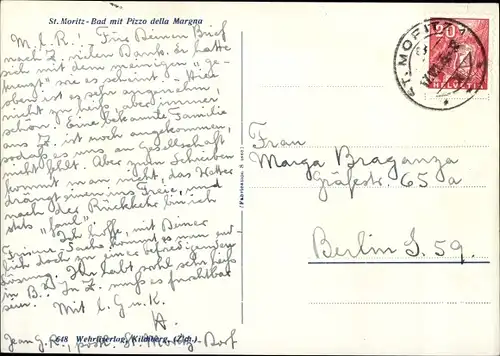 St. Moritz-Bad mit Pizzo della Margna
M. l. R.! Für Deinen Brief
nach Z. vielen Dank. Er hatte
sich mit dem meinigen „ge-
kreuzt" wie es scheint. - Hier
oben ist es sehr angenehm,
nicht zu heiss aber immer
schön. Eine bekannte Familie
aus Z. ist noch angekommen,
sodass es uns an Gesellschaft
nicht fehlt. Aber zum Schreiben
kommt man nicht, das Wetter
drängt einen ins Freie, und
nach der Rückkehr bin ich
stets „faul".
Ich hoffe, mit Deiner
kommt es nun end-
lich doch zu einer befriedigenden
Lösung. Ihr habt wohl sehr heiss
in B.. In Z. muss es furchtbar
sein. Mit l. G. u. K.
Jean G. R., St. Moritz-Dorf
648 Wehrliverlag, Kilchberg, (Zch.)
ST. MORITZ 1
20
HELVETIA
Frau
Marga Braganza
Gräfestr. 65 a
Berlin S. 59.